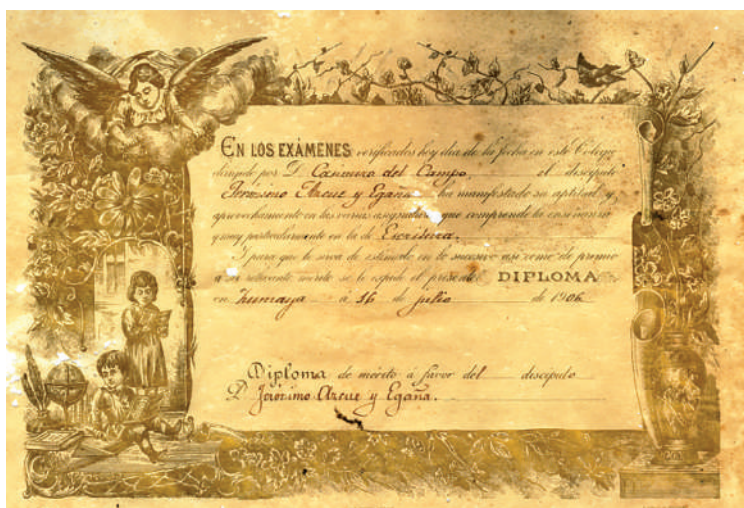 EN LOS EXÁMENES verificados hoy dia de la fecha en este Colegio
dirigido por D. Casimiro del Campo el discípulo
Jerónimo Azcue y Egaña ha manifestado su aptitud y
aprovechamiento en las varias asignaturas que comprende la enseñanza
y muy particularmente en la de Escritura.
Y para que le sirva de estímulo en lo sucesivo asi como de premio
a su relevante mérito se le expide el presente DIPLOMA
en Zumaya á 16 de julio de 1906
Diploma de mérito á favor del discípulo
D. Jerónimo Azcue y Egaña.